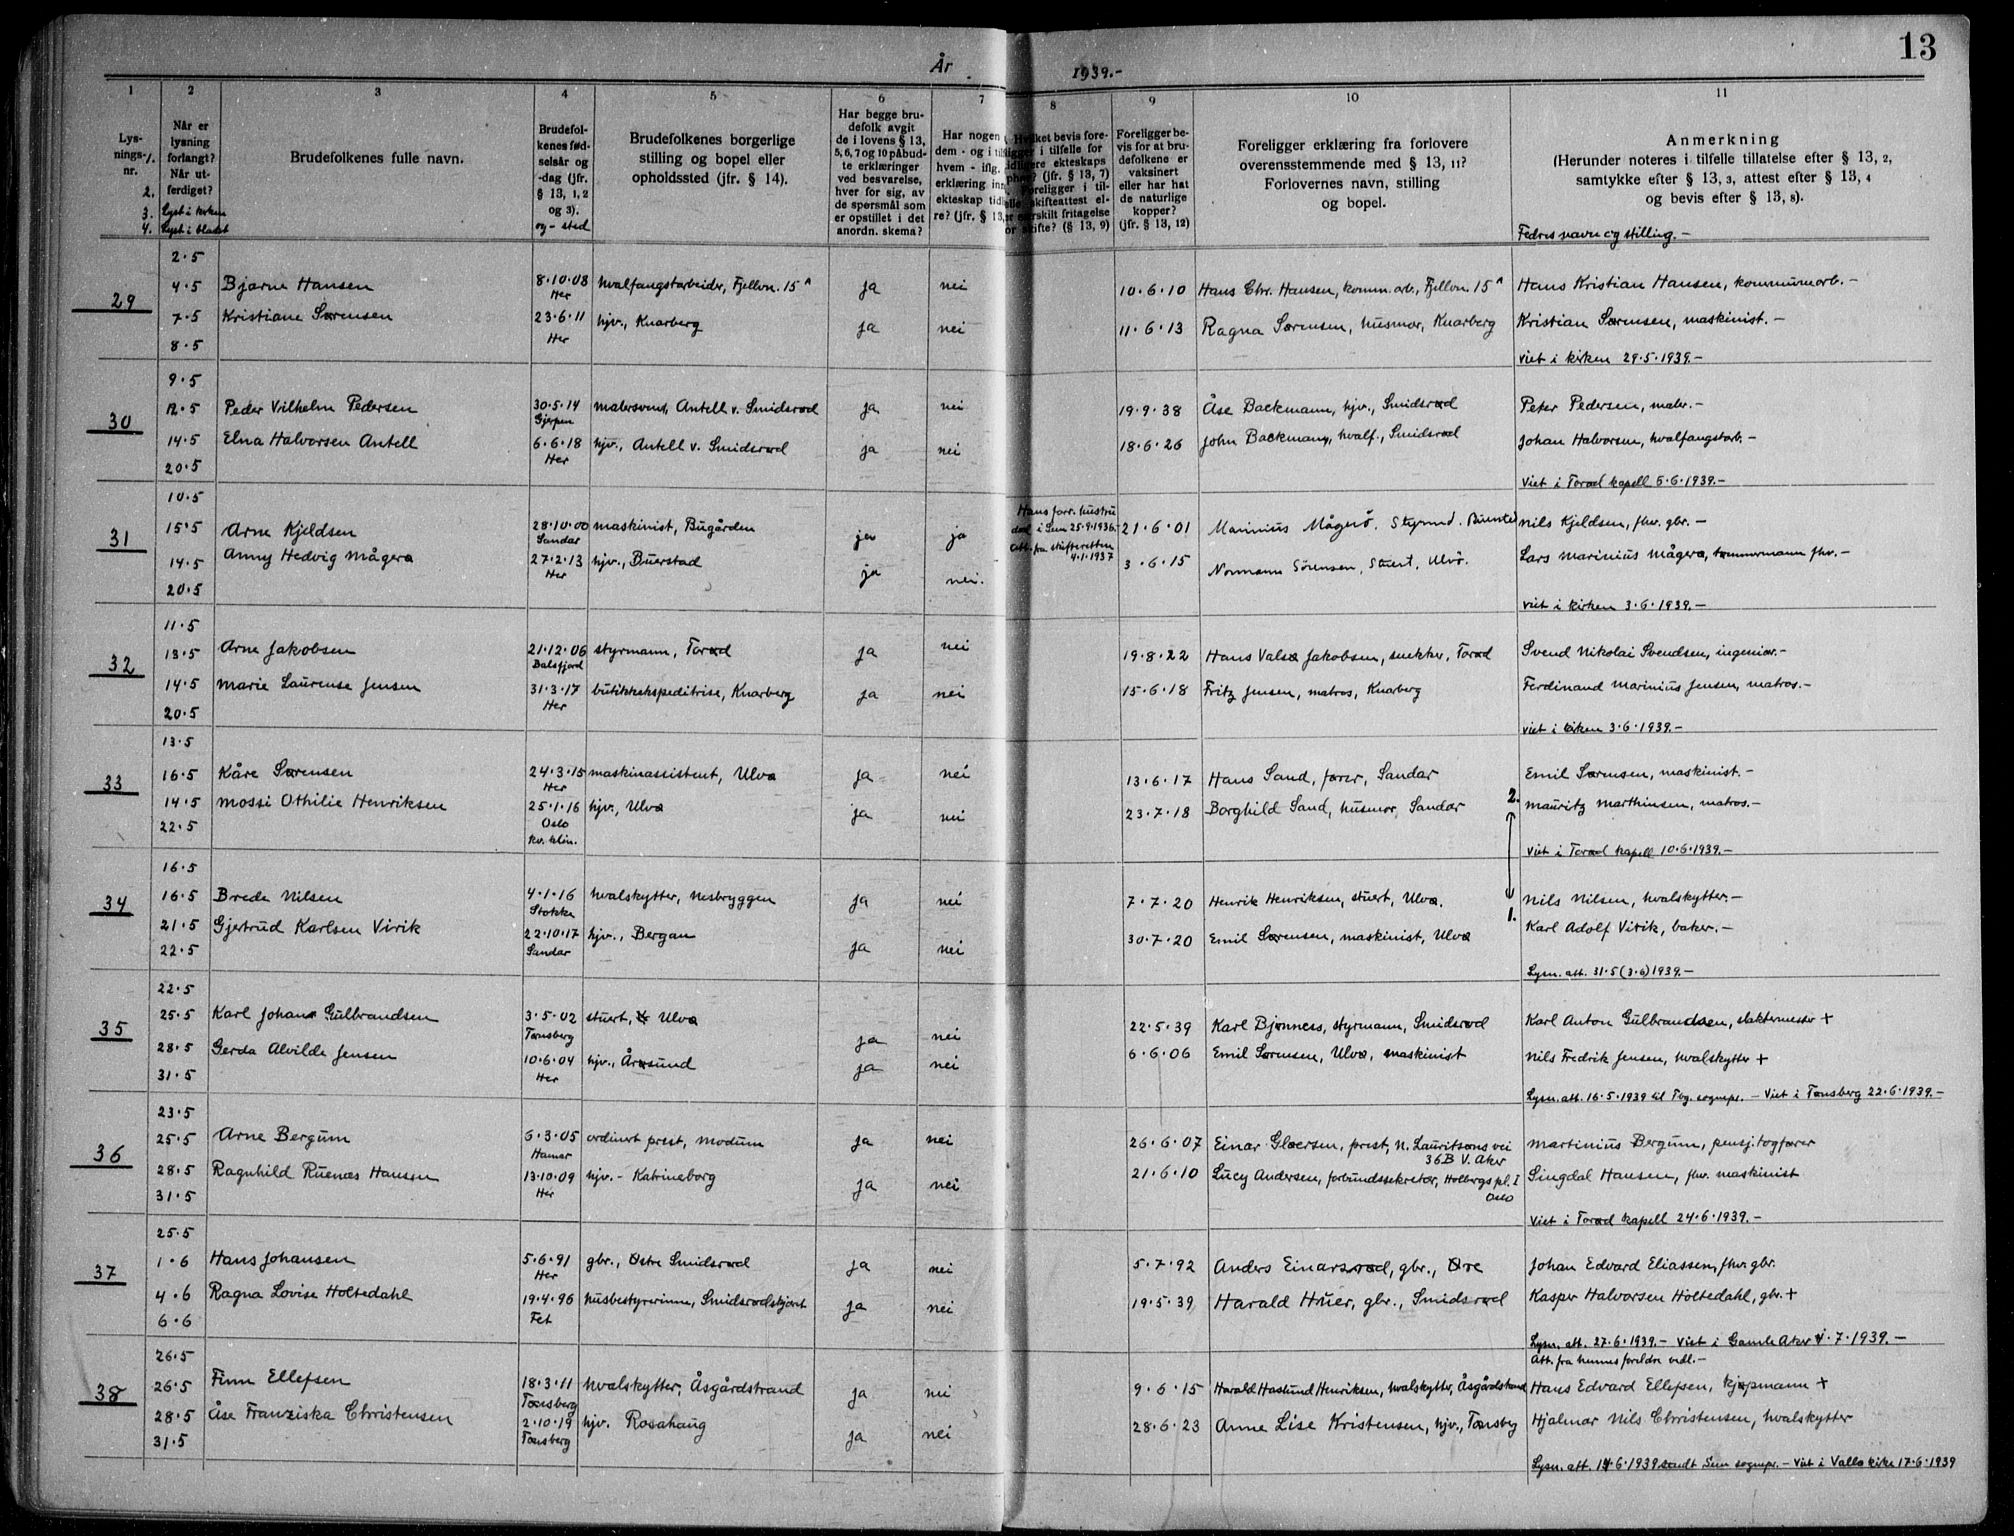 År 1939.-
13
1 2 3 4 5 6 7 8 9 10 11
Lysnings- nr. 1. 2. 3. 4.
Når er lysning forlangt? Når utferdiget? Lyst i kirken Lyst i bladet
Brudefolkenes fulle navn.
Brudefolkenes fødselsår og -dag (jfr. § 13, 1, 2 og 3). og - sted
Brudefolkenes borgerlige stilling og bopel eller opholdssted (jfr. § 14).
Har begge brudefolk avgit de i lovens § 13, 5, 6, 7 og 10 påbudte erklæringer ved besvarelse, hver for sig, av de spørsmål som er opstillet i det anordn. skema?
Foreligger bevis for at brudefolkene er vaksinert eller har hat de naturlige kopper? (jfr. § 13, 12)
Foreligger erklæring fra forlovere overensstemmende med § 13, 11? Forlovernes navn, stilling og bopel.
Anmerkning (Herunder noteres i tilfelle tillatelse efter § 13, 2, samtykke efter § 13, 3, attest efter § 13, 4 og bevis efter § 13, 8).
Fedres navn og stilling.-
29
2.5
4.5 Bjarne Hansen 8.10.08 Her hvalfangstarbeider, Fjellvn. 15 A ja nei 10.6.10 Hans Chr. Hansen, komm. arb., Fjellvn. 15 A Hans Kristian Hansen, kommunearb.-
7.5 Kristiane Sørensen 23.6.11 Her hjv., Knarberg ja nei 11.6.13 Ragna Sørensen, husmor, Knarberg Kristian Sørensen, maskinist.-
8.5 Viet i kirken 29.5.1939.-
30
9.5
12.5 Peder Vilhelm Pedersen 30.5.14 Gjerpen malersvend, Antell v. Smidsrød ja nei 19.9.38 Åse Backmann, hjv., Smidsrød Peter Pedersen, maler.-
14.5 Elna Halvorsen Antell 6.6.18 Her hjv., Antell v. Smidsrød ja nei 18.6.26 John Backmann, hvalf., Smidsrød Johan Halvorsen, hvalfangstarb.-
20.5 Viet i Torød kapell 5.6.1939.-
31
10.5
15.5 Arne Kjeldsen 28.10.00 Sandar maskinist, Bugården ja ja Hans forr. hustru død i Sem 25.9.1936.- Att. fra skifteretten 4.1.1937 21.6.01 Marinius Mågerø, Styrmd. Nils Kjeldsen, fhv. gbr.-
14.5 Anny Hedvig Mågerø 27.2.13 Her hjv., Buerstad ja nei. 3.6.15 Normann Sörensen, Stuert, Ulvö. Lars Marinius Mågerø, tømmermann fhv.-
20.5 Viet i kirken 3.6.1939.-
32
11.5
13.5 Arne Jakobsen 21.12.06 Balsfjord styrmann, Torød ja nei 19.8.22 Hans Valsø Jakobsen, snekker, Torød Svend Nikolai Svendsen, ingeniør.-
14.5 Marie Laurense Jensen 31.3.17 Her butikkekspeditrise, Knarberg ja nei 15.6.18 Fritz Jensen, matros, Knarberg Ferdinand Marinius Jensen, matros.-
20.5 Viet i kirken 3.6.1939.-
33
13.5
16.5 Kåre Sørensen 24.3.15 Her maskinassistent, Ulvø ja nei 13.6.17 Hans Sand, fører, Sandar Emil Sørensen, maskinist.-
14.5 Mossi Othilie Henriksen 25.1.16 Oslo kv. klin. hjv., Ulvø ja nei 23.7.18 Borghild Sand, husmor, Sandar 2. Mauritz Marthinsen, matros.-
22.5 Viet i Torød kapell 10.6.1939.-
34
16.5
16.5 Brede Nilsen 4.1.16 Stokke hvalskytter, Nesbryggen ja nei 7.7.20 Henrik Henriksen, stuert, Ulvø. Nils Nilsen, hvalskytter.-
21.5 Gjertrud Karlsen Virik 22.10.17 Sandar hjv., Bergan ja nei 30.7.20 Emil Sørensen, maskinist, Ulvø 1. Karl Adolf Virik, baker.-
22.5 Lysn. att. 31.5 (3.6) 1939.-
35
22.5
25.5 Karl Johan Gulbrandsen 3.5.02 Tønsberg stuert, Ulvø ja nei 22.5.39 Karl Bjønness, styrmann, Smidsrød Karl Anton Gulbrandsen, slaktermester +
28.5 Gerda Alvilde Jensen 10.6.04 Her hjv., Årøsund ja nei 6.6.06 Emil Sørensen, Ulvø, maskinist Nils Fredrik Jensen, hvalskytter +
31.5 Lysn. att. 16.5.1939 til Tbg. sognepr. - Viet i Tønsberg 22.6.1939.-
36
23.5
25.5 Arne Bergum 6.3.05 Hamar ordinert prest, Modum ja nei 26.6.07 Einar Gløersen, prest, N. Lauritsons vei 36B V. Aker Martinius Bergum, pensj. togfører
28.5 Ragnhild Ruenæs Hansen 13.10.09 Her hjv. - Katrineborg ja nei 21.6.10 Lucy Andersen, forbundssekretær, Holbergs pl. I Oslo Singdal Hansen, fhv. maskinist
31.5 Viet i Torød kapell 24.6.1939.-
37
25.5
1.6 Hans Johansen 5.6.91 Her gbr., Østre Smidsrød ja nei 5.7.92 Anders Einarsrød, gbr., Øre Johan Edvard Eliassen, fhv. gbr.
4.6 Ragna Lovise Holtedahl 19.4.96 Fet husbestyrerinne, Smidsrødskjæret ja nei 19.5.39 Harald Huer, gbr., Smidsrød Kasper Halvorsen Holtedahl, gbr. +
6.6 Lysn. att. 27.6.1939.- Viet i Gamle Aker 1.7.1939.-
38
26.5 Att. fra hennes foreldre vedl.-
26.5 Finn Ellefsen 18.3.11 Tønsberg hvalskytter, Åsgårdstrand ja nei 9.6.15 Harald Haslund Henriksen, hvalskytter, Åsgårdstrand Hans Edvard Ellefsen, kjøpmann +
28.5 Åse Franziska Christensen 2.10.19 Tønsberg hjv. Rosahaug ja nei 28.6.23 Anne Lise Kristensen, hjv., Tønsberg Hjalmar Nils Christensen, hvalskytter
31.5 Lysn. att. 14.6.1939 sendt Sem sognepr. - Viet i Vallø kirke 17.6.1939